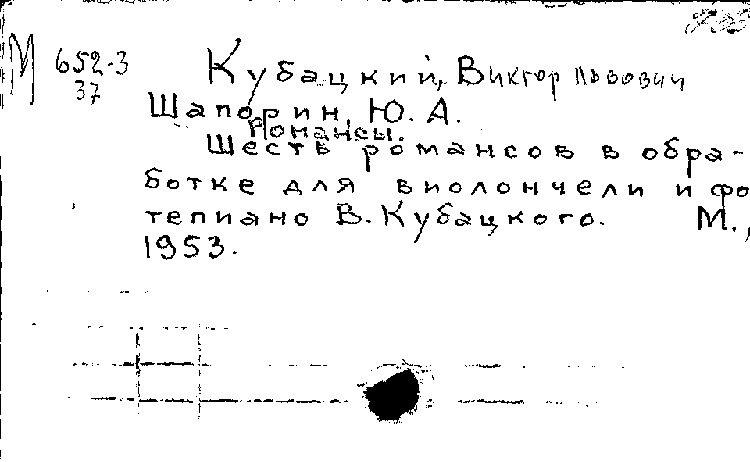 М 652-3
37
Кубацкий, Виктор Львович
Шапорин, Ю. А.
Романсы.
Шесть романсов в обра-
ботке для виолончели и фо
тепиано В. Кубацкого. М.,
1953.